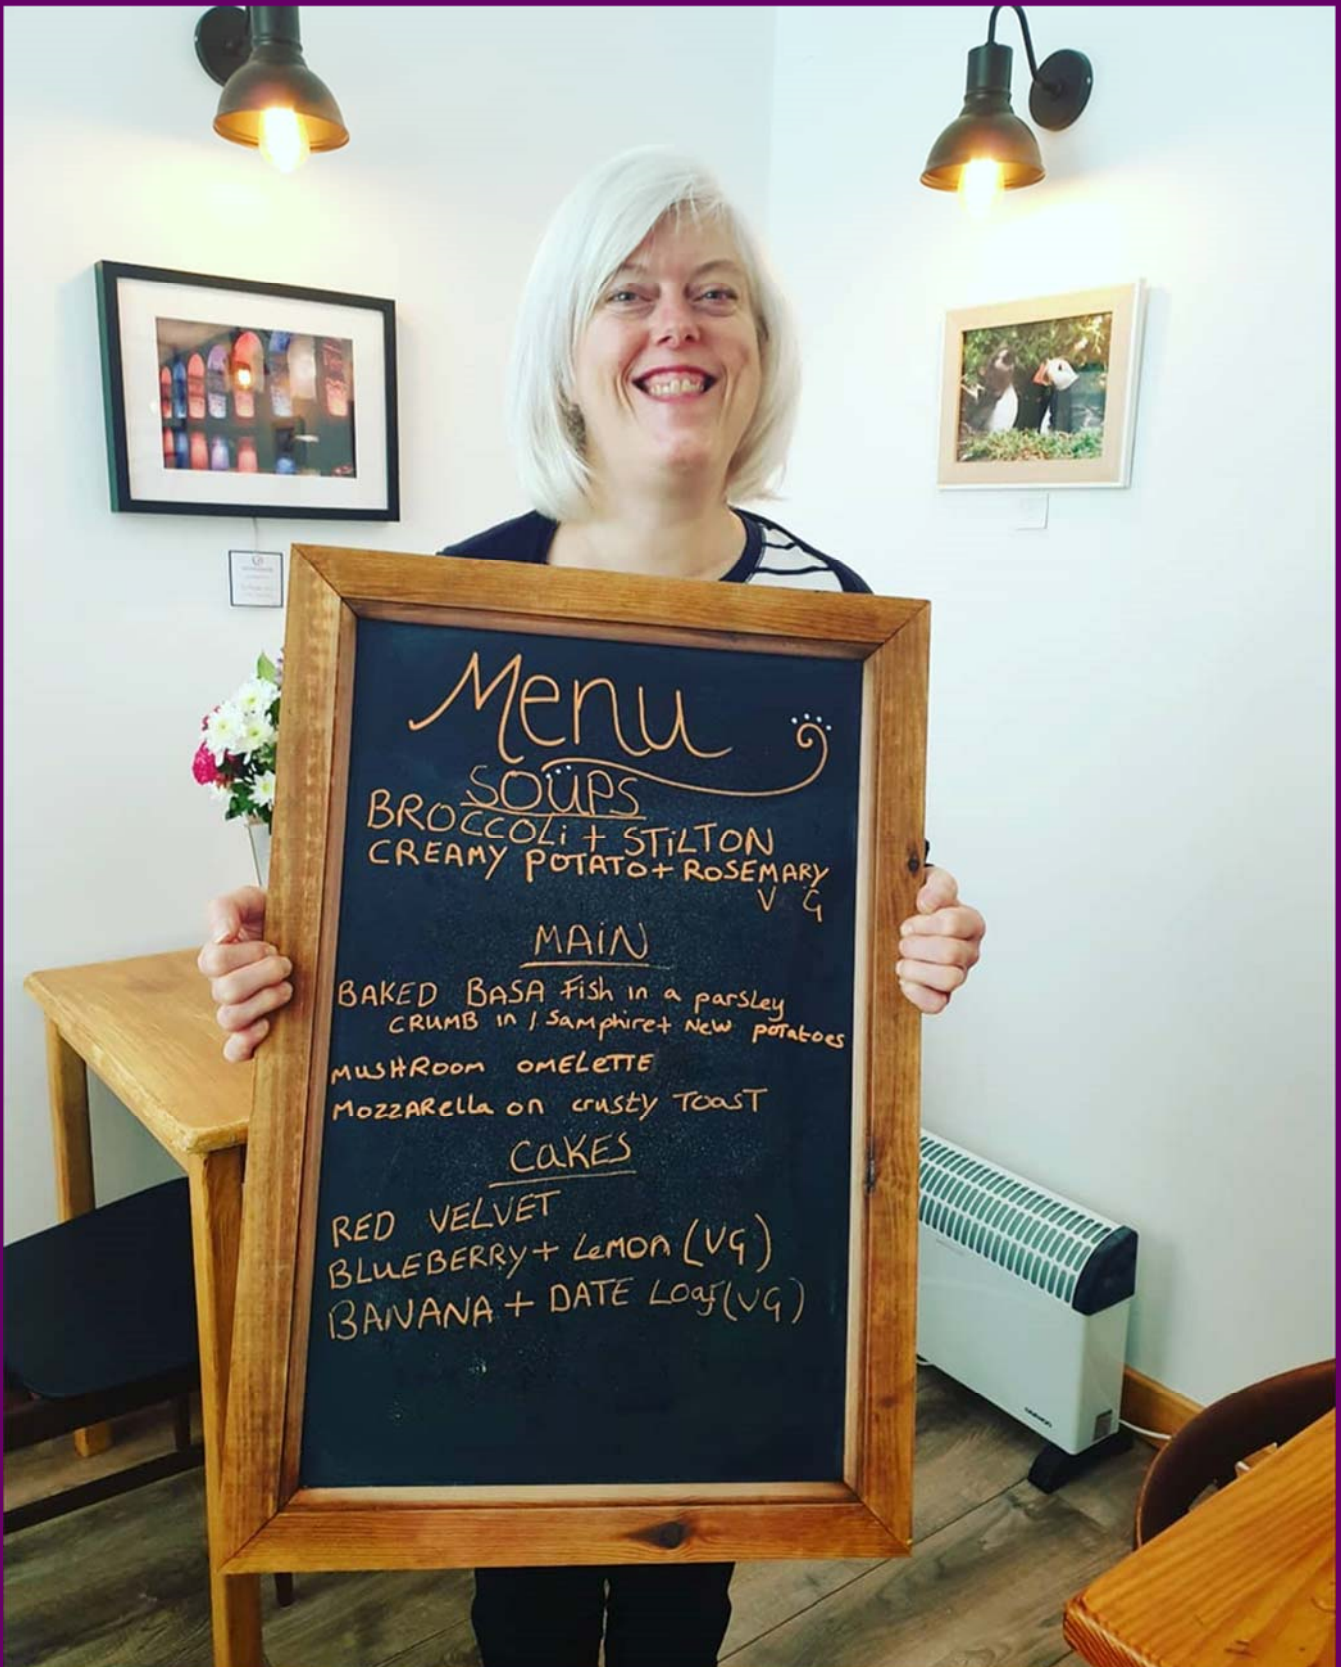 Menu
SOUPS
BROCCOLi + STiLTON
CREAMY POTATO + ROSEMARY
V G
MAiN
BAKED BASA Fish in a parsley
CRUMB in / Samphire + New potatoes
MUSHRoom OMELeTTE
MOZZARella on crusty ToasT
CaKES
RED VELVET
BLUEBERRY + LeMon (VG)
BANANA + DATE Loaf (VG)